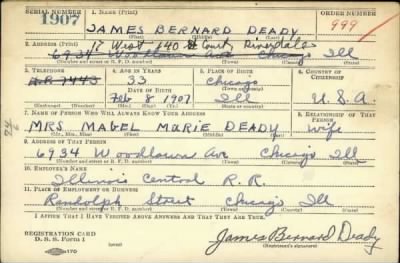 SERIAL NUMBER 1. NAME (Print) ORDER NUMBER
1907 JAMES BERNARD DEADY 999
(First) (Middle) (Last)
2. ADDRESS (Print)
17 West 140 Court Riverdale
6934 Woodlawn Ave Chicago Ill
(Number and street or R. F. D. number) (Town) (County) (State)
3. TELEPHONE 4. AGE IN YEARS 5. PLACE OF BIRTH 6. COUNTRY OF CITIZENSHIP
7443 33 Chicago
DATE OF BIRTH (Town or county)
Feb 8 1907 Ill U.S.A
(Exchange) (Number) (Mo.) (Day) (Yr.) (State or country)
7. NAME OF PERSON WHO WILL ALWAYS KNOW YOUR ADDRESS 8. RELATIONSHIP OF THAT PERSON
MRS MABEL MARIE DEADY Wife
(Mr., Mrs., Miss) (First) (Middle) (Last)
9. ADDRESS OF THAT PERSON
6934 Woodlawn Av Chicago Ill
(Number and street or R. F. D. number) (Town) (County) (State)
10. EMPLOYER'S NAME
Illinois Central R.R.
11. PLACE OF EMPLOYMENT OR BUSINESS
Randolph Street Chicago Ill
(Number and street or R. F. D. number) (Town) (County) (State)
I AFFIRM THAT I HAVE VERIFIED ABOVE ANSWERS AND THAT THEY ARE TRUE.
REGISTRATION CARD
D. S. S. Form 1 James Bernard Deady
(over) (Registrant's signature)